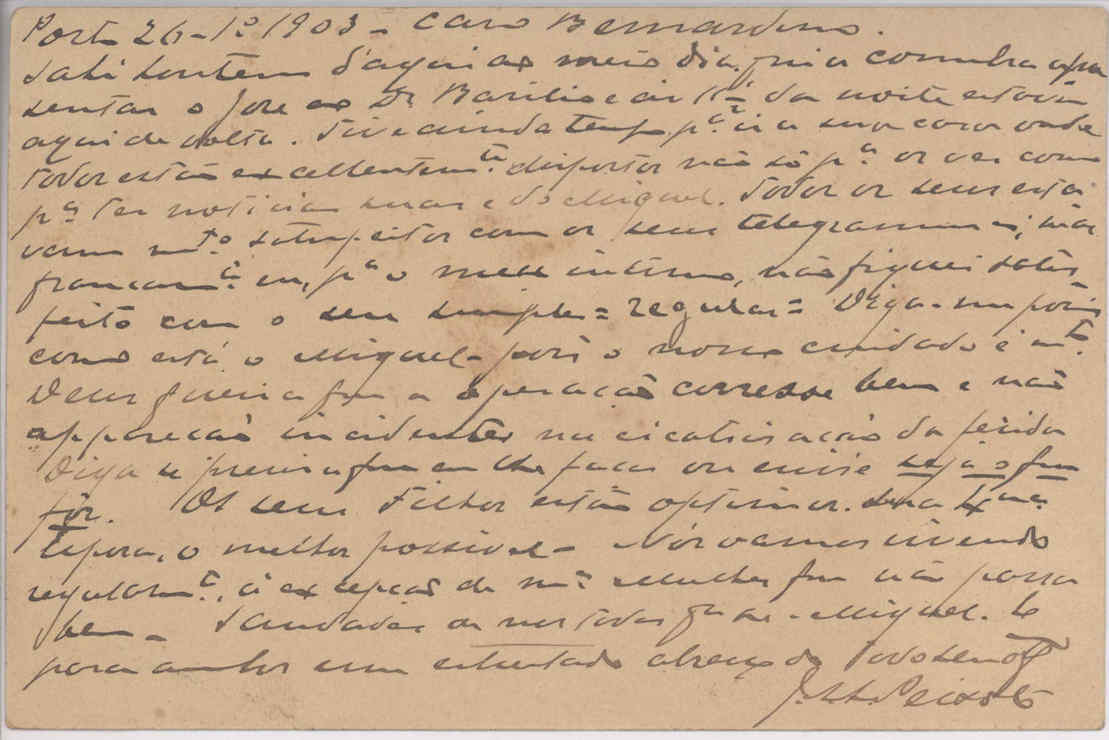 Porto 26-1º-1903 - Caro Bernardino.
Sahi hontem d'aqui ao meio dia, fui a Coimbra apre
sentar o José ao Dr. Basilio e ás 11 ½ da noite estava
aqui de volta. Tive ainda tempo pª ir a sua casa onde
todos estão excellentemte. dispostos não só pª os ver como
pª ter noticias suas e do Miguel. Todos os seus esta
vam mto. satisfeitos com os seus telegrammas; mas
francamte. eu, pª o meu intimo, não fiquei satis
feito com o seu simples = regular = Diga-me pois
como está o Miguel - pois o nosso cuidado é mto.
Deus queira que a operação corresse bem e não
appareção incidentes na cicatrisação da ferida
Diga se precisa que eu lhe faça ou envie seja o que
fôr. Os seus Filhos estão optimos. Sua
Esposa, o melhor possivel - Nós vamos vivendo
regularmte., á excepção de mª Mulher que não passa
bem - Saudades de nós todos Miguel. E
para ambos um estreitado abraço do Todo seu
Peixoto